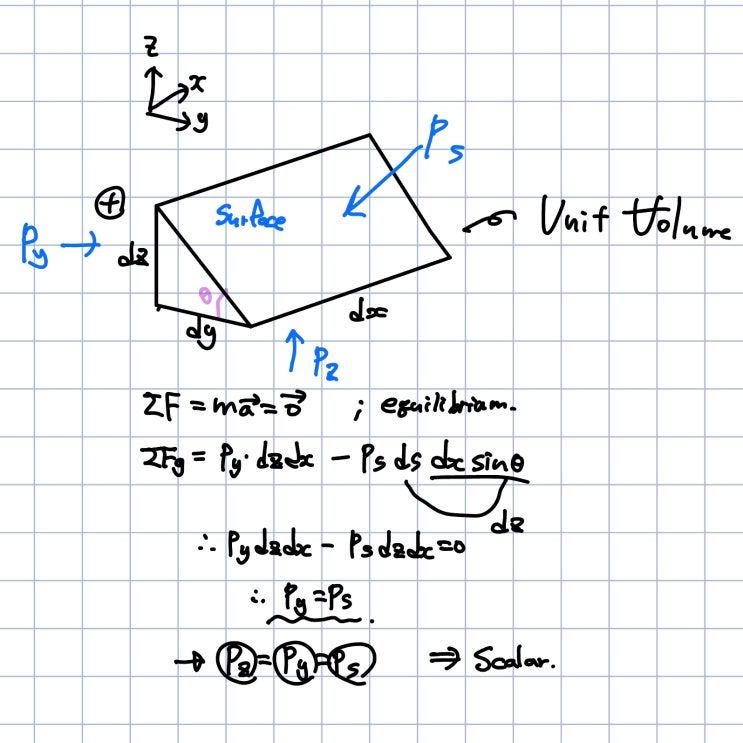 z
x
y
Ps
⊕
Surface
Unit Volume
Py →
dz
θ
dy
dx
↑ Pz
ΣF = ma⃗ = 0⃗ ; equilibriam.
ΣFy = Py·dzdx - Ps ds dx sinθ
dz
∴ Py dzdx - Ps dzdx = 0
∴ Py = Ps.
→ Pz = Py = Ps ⇒ Scalar.